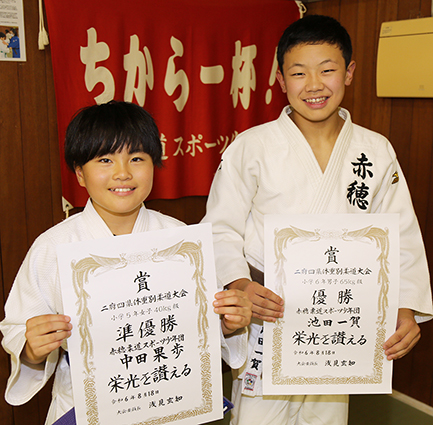 ちから一杯!
柔道スポーツ少
赤穂
賞
二府四県体重別柔道大会
小学5年女子40kg級
準優勝
赤穂柔道スポーツ少年団
中田果歩
栄光を讃える
令和6年8月18日
大会会長
浅見玄如
賞
二府四県体重別柔道大会
小学6年男子65kg級
優勝
赤穂柔道スポーツ少年団
池田一賀
栄光を讃える
令和6年8月18日
大会会長
浅見玄如